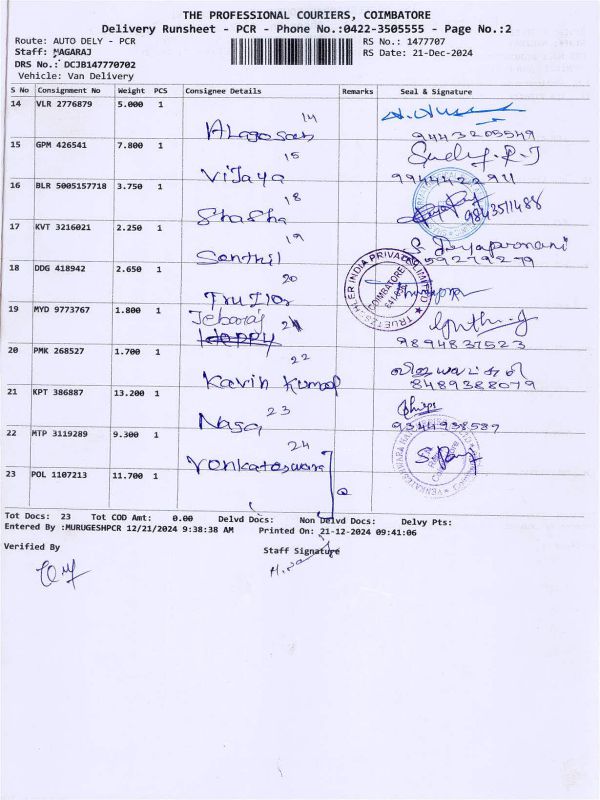 THE PROFESSIONAL COURIERS, COIMBATORE
Delivery Runsheet - PCR - Phone No.:0422-3505555 - Page No.:2
Route: AUTO DELY - PCR RS No.: 1477707
Staff: NAGARAJ RS Date: 21-Dec-2024
DRS No.: DCJB147770702
Vehicle: Van Delivery
S No Consignment No Weight PCS Consignee Details Remarks Seal & Signature
14 VLR 2776879 5.000 1 14
9443205549
15 GPM 426541 7.800 1 15
Vijaya 9944422911
16 BLR 5005157718 3.750 1 18
Shasha 9843511488
17 KVT 3216021 2.250 1 19
Senthil
18 DDG 418942 2.650 1 20
TRUETZSCHLER INDIA PRIVATE LIMITED
COIMBATORE
19 MYD 9773767 1.800 1
Jebaraj 9894837523
20 PMK 268527 1.700 1 22
Kavin Kumar 8489388079
21 KPT 386887 13.200 1 23
Naga 9344938587
22 MTP 3119289 9.300 1 24
Venkateswara
23 POL 1107213 11.700 1
Tot Docs: 23 Tot COD Amt: 0.00 Delvd Docs: Non Delvd Docs: Delvy Pts:
Entered By :MURUGESHPCR 12/21/2024 9:38:38 AM Printed On: 21-12-2024 09:41:06
Verified By Staff Signature